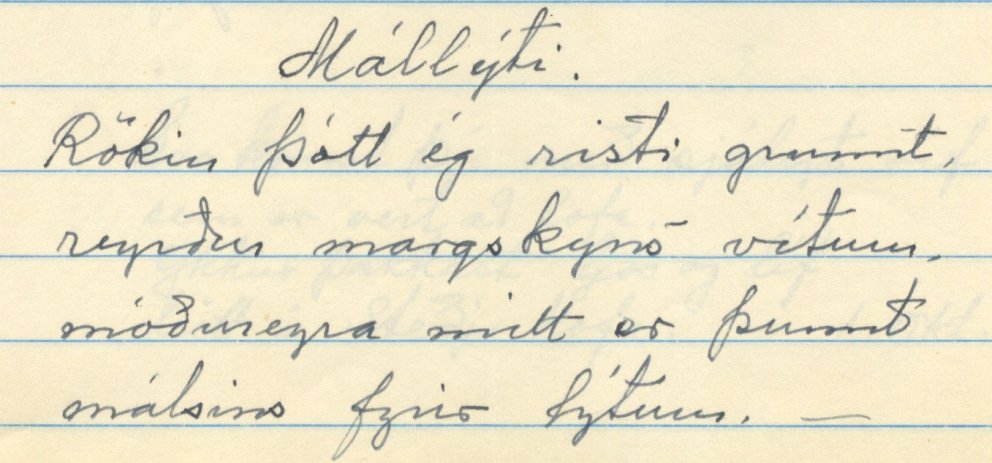 Mállýti.
Rökin þótt ég risti grunnt,
reyrður margskyns vítum,
móðureyra mitt er þunnt
málsins fyrir lýtum. —